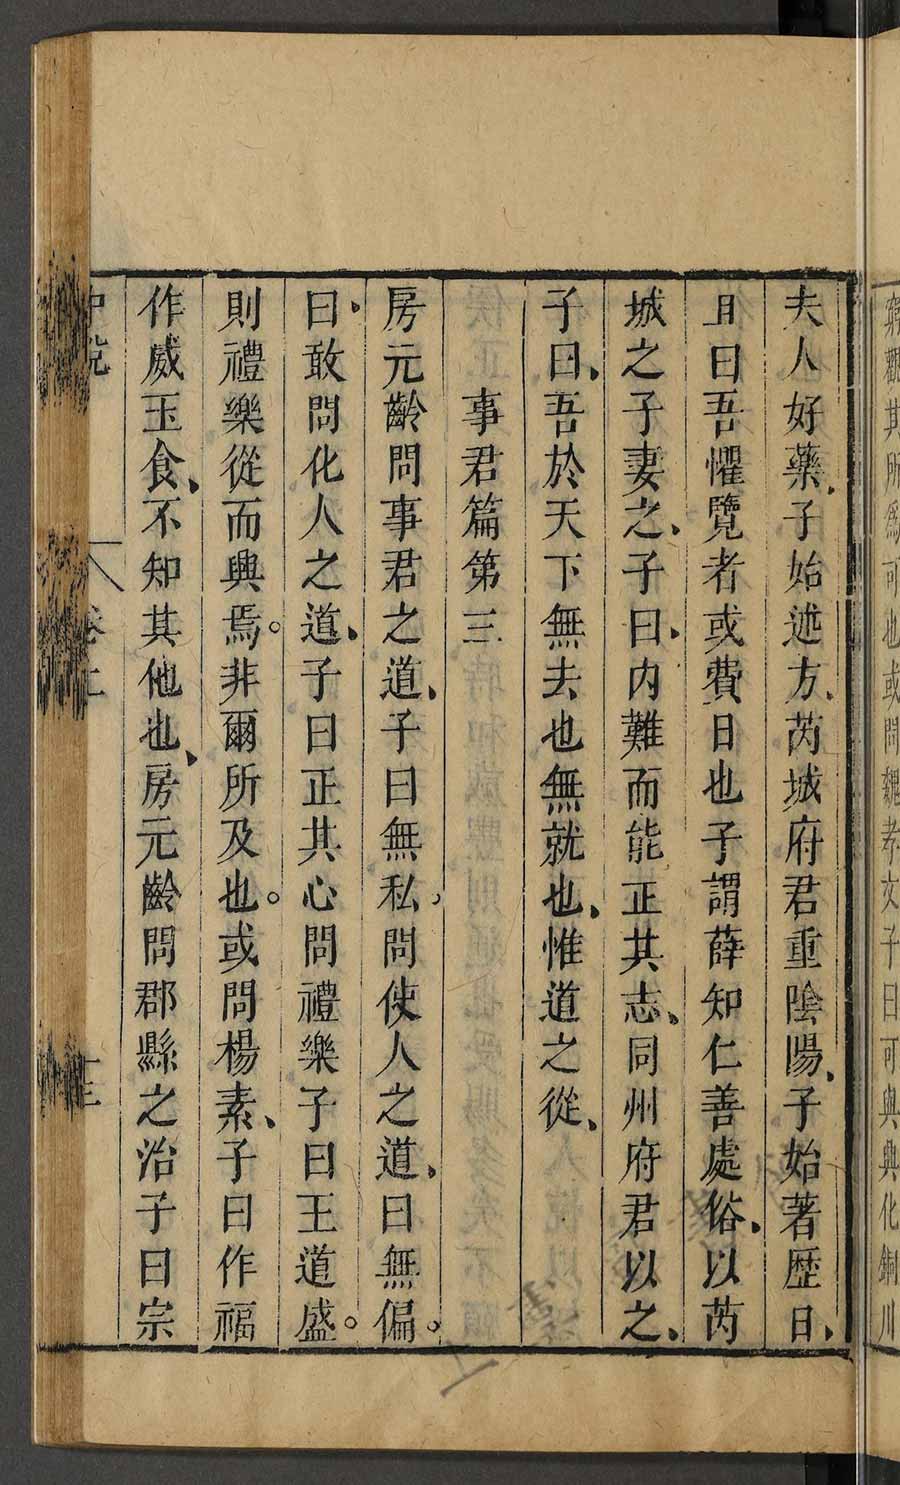 窮觀其所爲可也或問魏孝文子曰可與興化銅川
夫人好藥、子始述方、芮城府君重陰陽、子始著歷日、
且曰吾懼覽者或費日也子謂薛知仁善處俗、以芮
城之子妻之、子曰、内難而能正其志、同州府君以之、
子曰、吾於天下無去也無就也、惟道之從、
事君篇第三
房元齡問事君之道、子曰無私。問使人之道、曰無偏。
曰、敢問化人之道、子曰正其心問禮樂子曰王道盛。
則禮樂從而興焉。非爾所及也。或問楊素、子曰作福
作威玉食、不知其他也、房元齡問郡縣之治子曰宗
中說
卷上